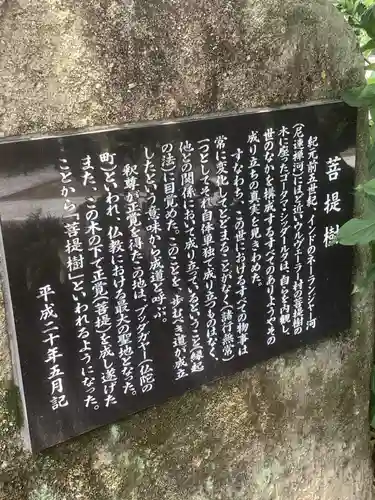 菩提樹
紀元前五世紀、インドのネーランジャー河
（尼連禅河）ほど近いウルヴェーラー村の菩提樹の
木に座ったゴータマ・シッダールタは、自らを内観し、
世のなかを構成するすべてのありようやその
成り立ちの真実を見きわめた。
すなわち、この世におけるすべての物事は
常に変化してとどまることがなく（諸行無常）
一つとしてそれ自体単独で成り立つものはなく、
他との関係において成り立っているということ（縁起
の法）に目覚めた。このことを、歩むべき道が成立
したという意味から成道と呼ぶ。
釈尊が正覚を得たこの地は、ブッダガヤー（仏陀の
町）といわれ、仏教における最大の聖地となった。
また、この木の下で正覚（菩提）を成し遂げた
ことから「菩提樹」といわれるようになった。
平成二十年五月記